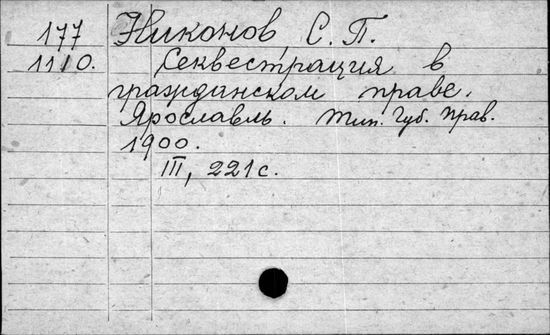 177 Никонов С. П.
1110. Секвестрация в
гражданском праве.
Ярославль. Тип. Губ. Прав.
1900.
III, 221 с.